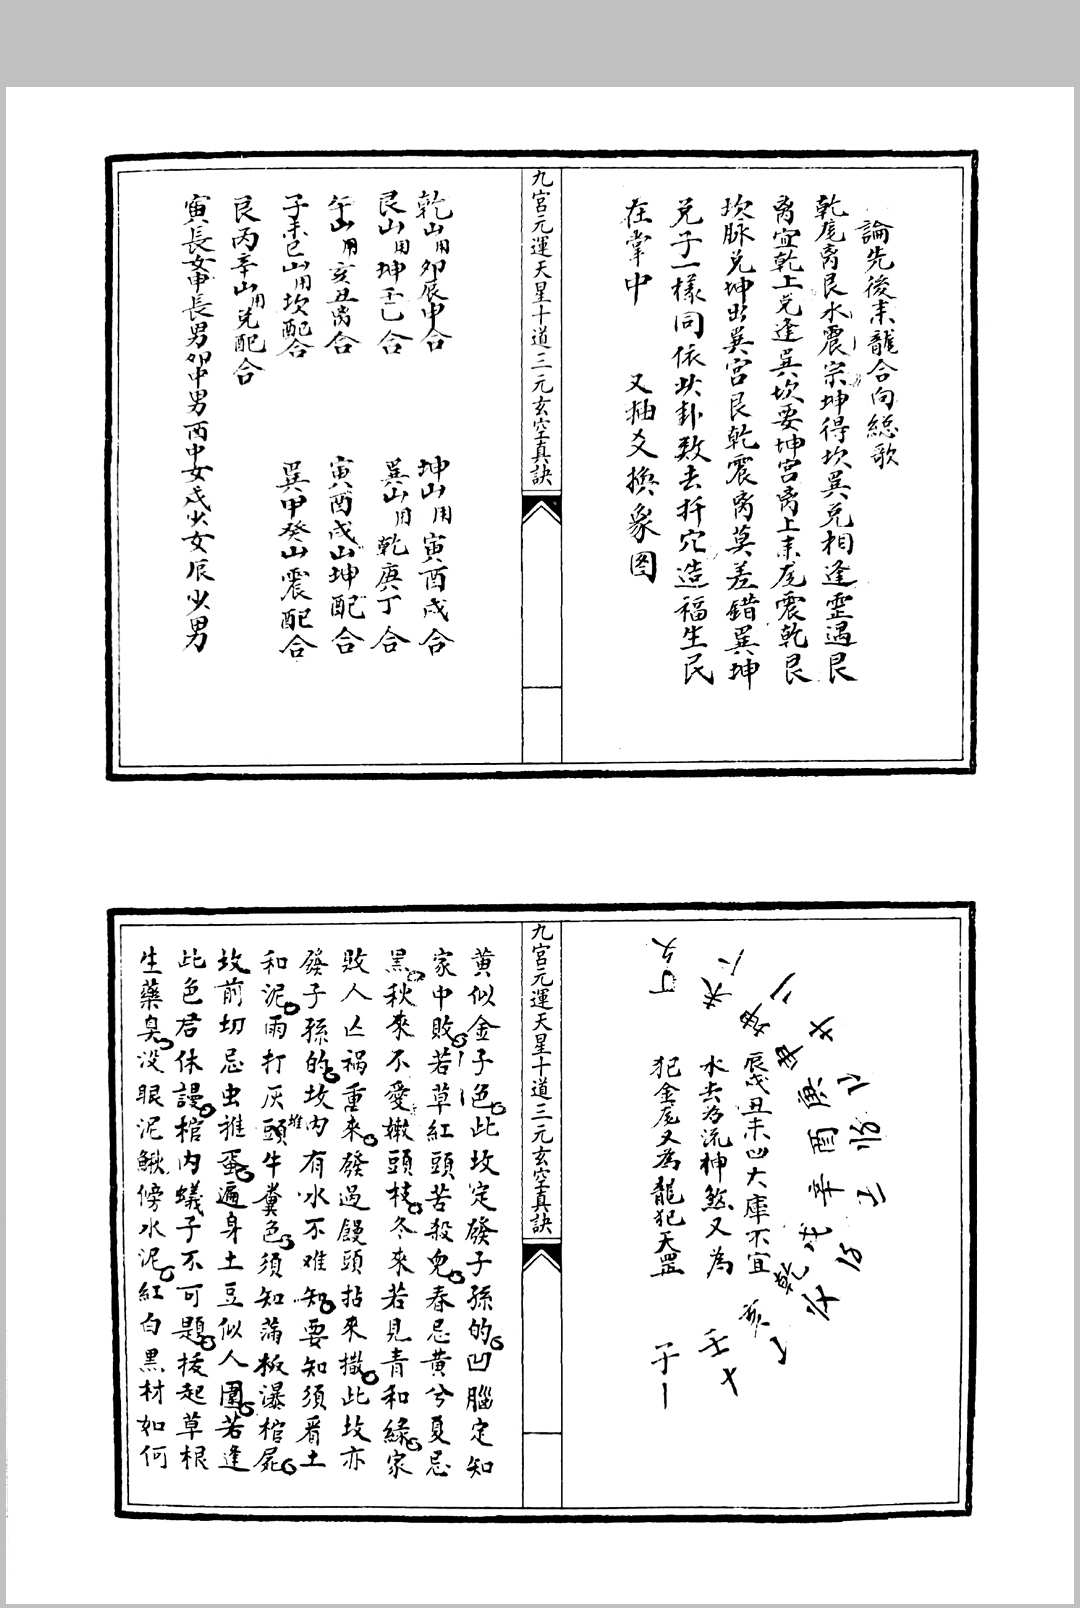 論先後来龍合向総歌
乾尾离艮水震宗坤得坎巽兌相逢霊遇艮
离宜乾上兌逢巽坎要坤宮离上来尾震乾艮
坎脉兌坤出巽宮艮乾震离莫差錯巽坤
兌子一樣同依此卦数去扦穴造福生民
在掌中 又抽爻換象图
九宮元運天星十道三元玄空真訣
乾山用卯辰申合 坤山用寅酉戌合
艮山用坤壬乙合 巽山用乾庚丁合
午山用亥丑离合 寅酉戌山坤配合
子未巳山用坎配合 巽甲癸山震配合
艮丙辛山用兌配合
寅長女申長男卯中男酉中女戌少女辰少男
辰戌丑未凹大庫不宜
水去為流神煞又為
犯金尾又為龍犯天罡
丁
未
坤
申
庚
酉
辛
乾
亥
壬
子一
九宮元運天星十道三元玄空真訣
黄似金子色此坟定發子孫的凹腦定知
家中敗若草紅頭苦殺兒春忌黄兮夏忌
黑秋來不愛嫩頭枝冬來若見青和綠家
敗人亡禍重來發過饅頭拈來撒此坟亦
發子孫的坟內有水不难知要知須看土
和泥雨打灰堆頭牛糞色須知蒲板瀑棺屍
坟前切忌虫推蛋遍身土豆似人圍若逢
此色君休謾棺內蟻子不可題拔起草根
生藥臭没眼泥鰍傍水泥紅白黒材如何